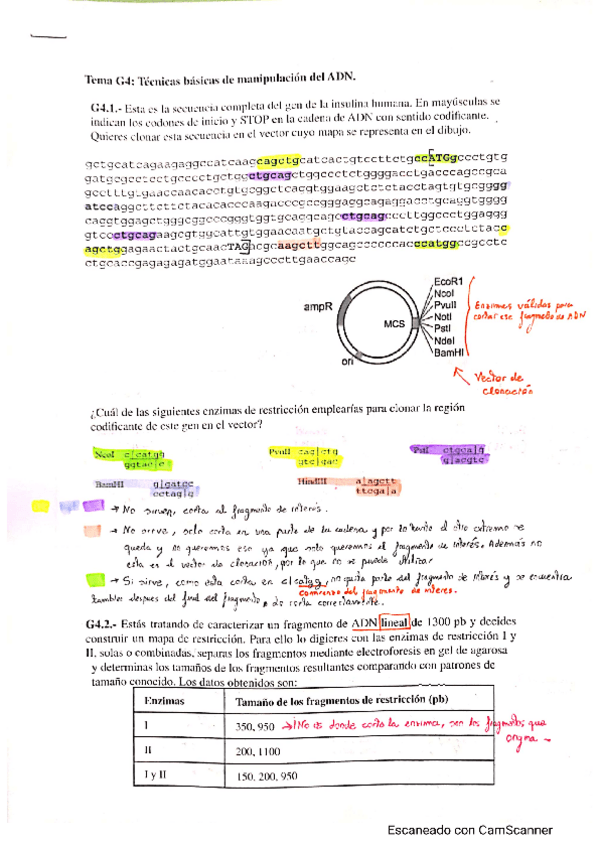 Tema G4: Técnicas básicas de manipulación del ADN.
G4.1.- Esta es la secuencia completa del gen de la insulina humana. En mayúsculas se
indican los codones de inicio y STOP en la cadena de ADN con sentido codificante.
Quieres clonar esta secuencia en el vector cuyo mapa se representa en el dibujo.
gctgcatcagaagaggccatcaagcagctgcatcactgtccttctgccATGgccctgtg
gatgcgcctcctgcccctgctggctgcagctggccctctggggacctgacccagccgca
gcctttgtgaaccaacacctgtgcggctcacgtggaagctctctacctagtgtgcgggg
EcoR1
NcoI
PvuII
NotI
PstI
NdeI
BamHI
ampR
MCS
ori
Enzimas válidas para
cortar ese fragmento de ADN
Vector de
clonación
¿Cuál de las siguientes enzimas de restricción emplearías para clonar la región
codificante de este gen en el vector?
NcoI c|catgg
ggtac|c
PvuII cag|ctg
gtc|gac
PstI ctgca|g
g|acgtc
BamHI g|gatcc
cctag|g
HindIII a|agctt
ttcga|a
→ No sirven, corta el fragmento de interés.
→ No sirve, solo corta en una parte de la cadena y por lo tanto el otro extremo se
queda y no queremos eso ya que solo queremos el fragmento de interés. Además no
esta en el vector de clonación, por lo que no se puede utilizar
→ Si sirve, como esta corta en c|catgg, no quita parte del fragmento de interés y se encuentra
comienzo del fragmento de interes.
tambien despues del final del fragmento, lo corta correctamente.
G4.2.- Estás tratando de caracterizar un fragmento de ADN lineal de 1300 pb y decides
construir un mapa de restricción. Para ello lo digieres con las enzimas de restricción I y
II, solas o combinadas, separas los fragmentos mediante electroforesis en gel de agarosa
y determinas los tamaños de los fragmentos resultantes comparando con patrones de
tamaño conocido. Los datos obtenidos son:
Enzimas Tamaño de los fragmentos de restricción (pb)
I 350, 950 → !No es donde corta la enzima, son los fragmentos que
origina
II 200, 1100
I y II 150, 200, 950
Escaneado con CamScanner